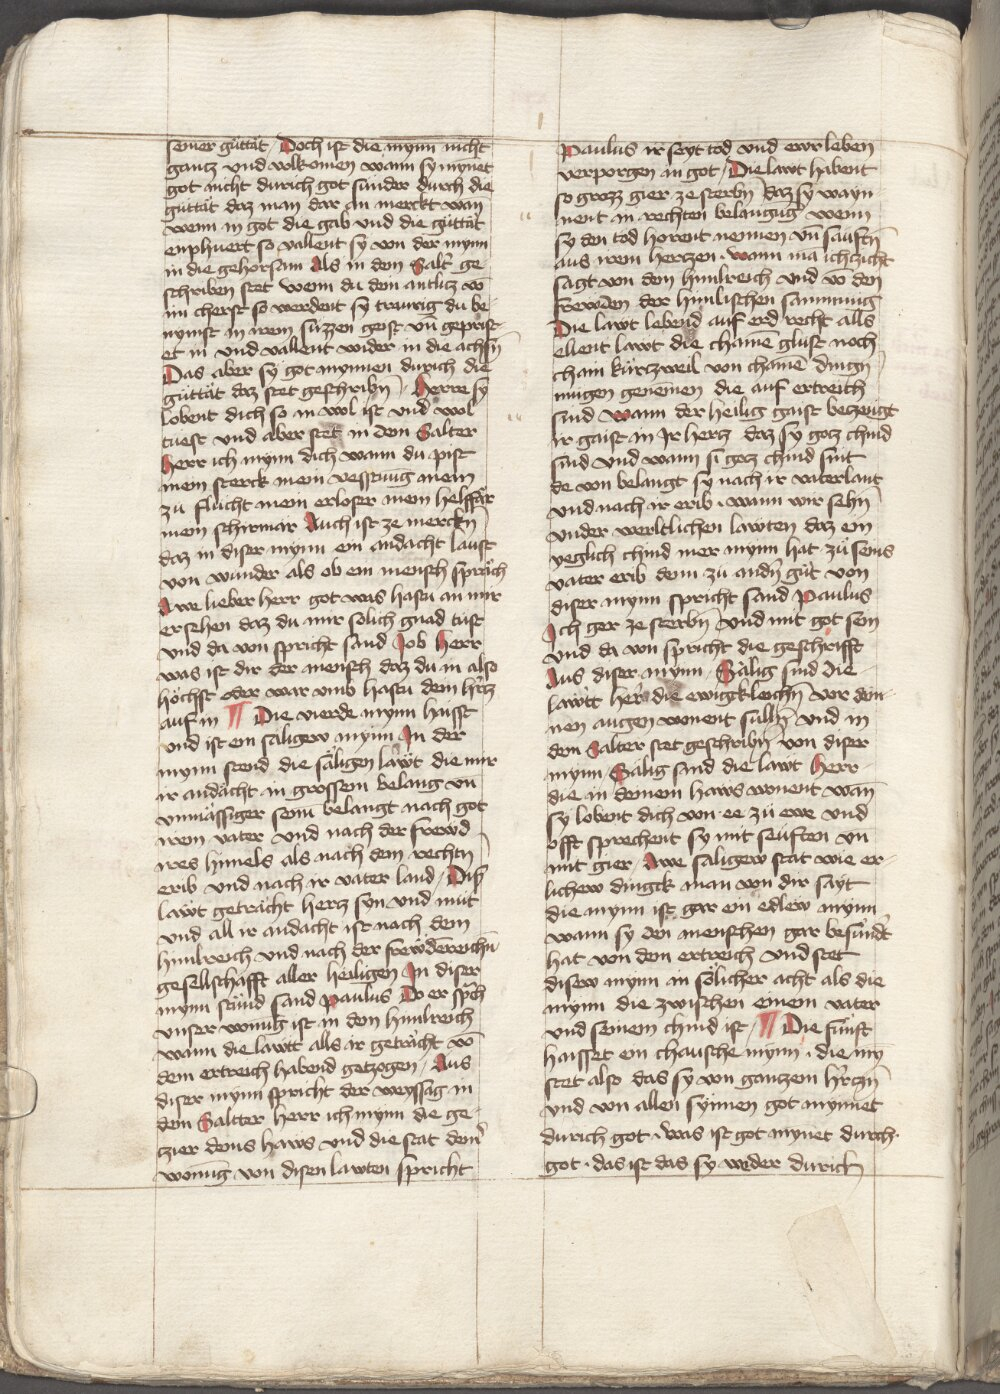 seiner güttät / Doch ist die mynn nicht
gantz vnd volkomen wann sy mynnet
got nicht durich got sunder durch die
güttät daz man dar an merckt wan
wenn in got die gab vnd die güttät
enphuert so vallent sy von der mynn
in die gehorsam Als in dem Salt̄ ge
schriben stet wenn du dein antlitz vō
im cherst so werdent sy traurig du be-
nymst in irem süzzen geist vn̄ geprist
et in vnd vallent wider in die aschn̄
Das aber sy got mynnen durich die
güttät daz stet geschribn̄ / Herre sy
lobent dich so in wol ist vnd wol
tuest vnd aber stet in dem Salter
Herr ich mynn dich wann du pist
mein sterck mein vestung mein
zu flucht mein erloser mein helffär
mein schirmar Auch ist ze merckn̄
daz in diser mynn ein andacht lauft
von wunder als ob ein mensch spräch
Awe lieber herr got was hastu an mir
ersehen daz du mir solich gnad tüst
vnd da von spricht sand Job Herr
was ist dir der mensch daz du in also
höchst oder war vmb hastu dein hr̄tz
auf in ¶ Die vierde mynn haisst
vnd ist ein saligew mynn In der
mynn stend die säligen läwt die mir
ir andächt in grossem belang vn̄
vnmässiger senn̄ belangt nach got
irem vater vnd nach der frewd
ires himels als nach dem rechtn̄
erib vnd nach ir vater land / Dis̄
läwt geträcht hertz syn vnd müt
vnd all ir andacht ist nach dem
himlreich vnd nach der frewdereichn̄
gesellschafft aller heiligen In diser
mynn stünd sand paulus Do er sp̄ch
vnser wonūg ist in dem himlreich
wann die läwt alls ir geträcht vō
dem ertreich habend getzogen / Aus
diser mynn spricht der weyssag in
dem Saltter herr ich mynn die ge-
czier deins haws vnd die stat dein̄
wonūg von disen lawten spricht
Paulus ir seyt tod vnd ewr leben
verporgen in got / Die lawt habent
so grozz gier ze sterbn̄ daz sy wayn
nent in rechten belangūg wenn
sy den tod horent nennen vn̄ säuftn̄
aus irem hertzen · wann ma ich zicht
sagt von dem himlreich vnd vō den
frewden der himlischen sammung
Die lawt lebend auf erd recht alls
ellent lawt die chainē glust noch
chain kürczweil von chainē dingn̄
mügen genemen die auf ertreich
sind wann der heilig gaist beczeugt
ir gaist in Jr hertz daz sy gotz chind
sind vnd wann si gotz chind sint
de von belangt sy nach ir vaterlant
vnd nach ir erib · wann wir sehn̄
vnder werltlichen lawten daz ein
yeglich chind mer mynn hat zü seins
vater erib denn zu andn̄ güt von
diser mynn spricht sand Paulus
Ich ger ze sterbn̄ vnd mit got sein
vnd da von spricht die geschrifft
Aus diser mynn / Sälig sind die
läwt her die ewigkleichn̄ vor dein-
nen augen wonent sulln̄ vnd in
dem Salter stet geschribn̄ von diser
mynn Sälig sind die läwt Herr
die in deinem haws wonent wan̄
sy lobent dich von ee zü ewe vnd
offt sprechent sy mit seüften vn̄
mit gier / Awe saligew stat wie er-
lichew dingck man von dir säyt
die mynn ist gar ein edlew mynn
wann sy den menschen gar besundt̄
hat von dem ertreich vnd stet
disew mynn in sölicher acht als die
mynn die zwischen einem vater
vnd seinem chind ist / ¶ Die fünft
haisset ein chausche mynn · die my̅
stet also das sy von gantzem hr̄czn̄
vnd von allen synnen got mynnet
durich got · was ist got mynet durch
got · das ist das sy weder durich